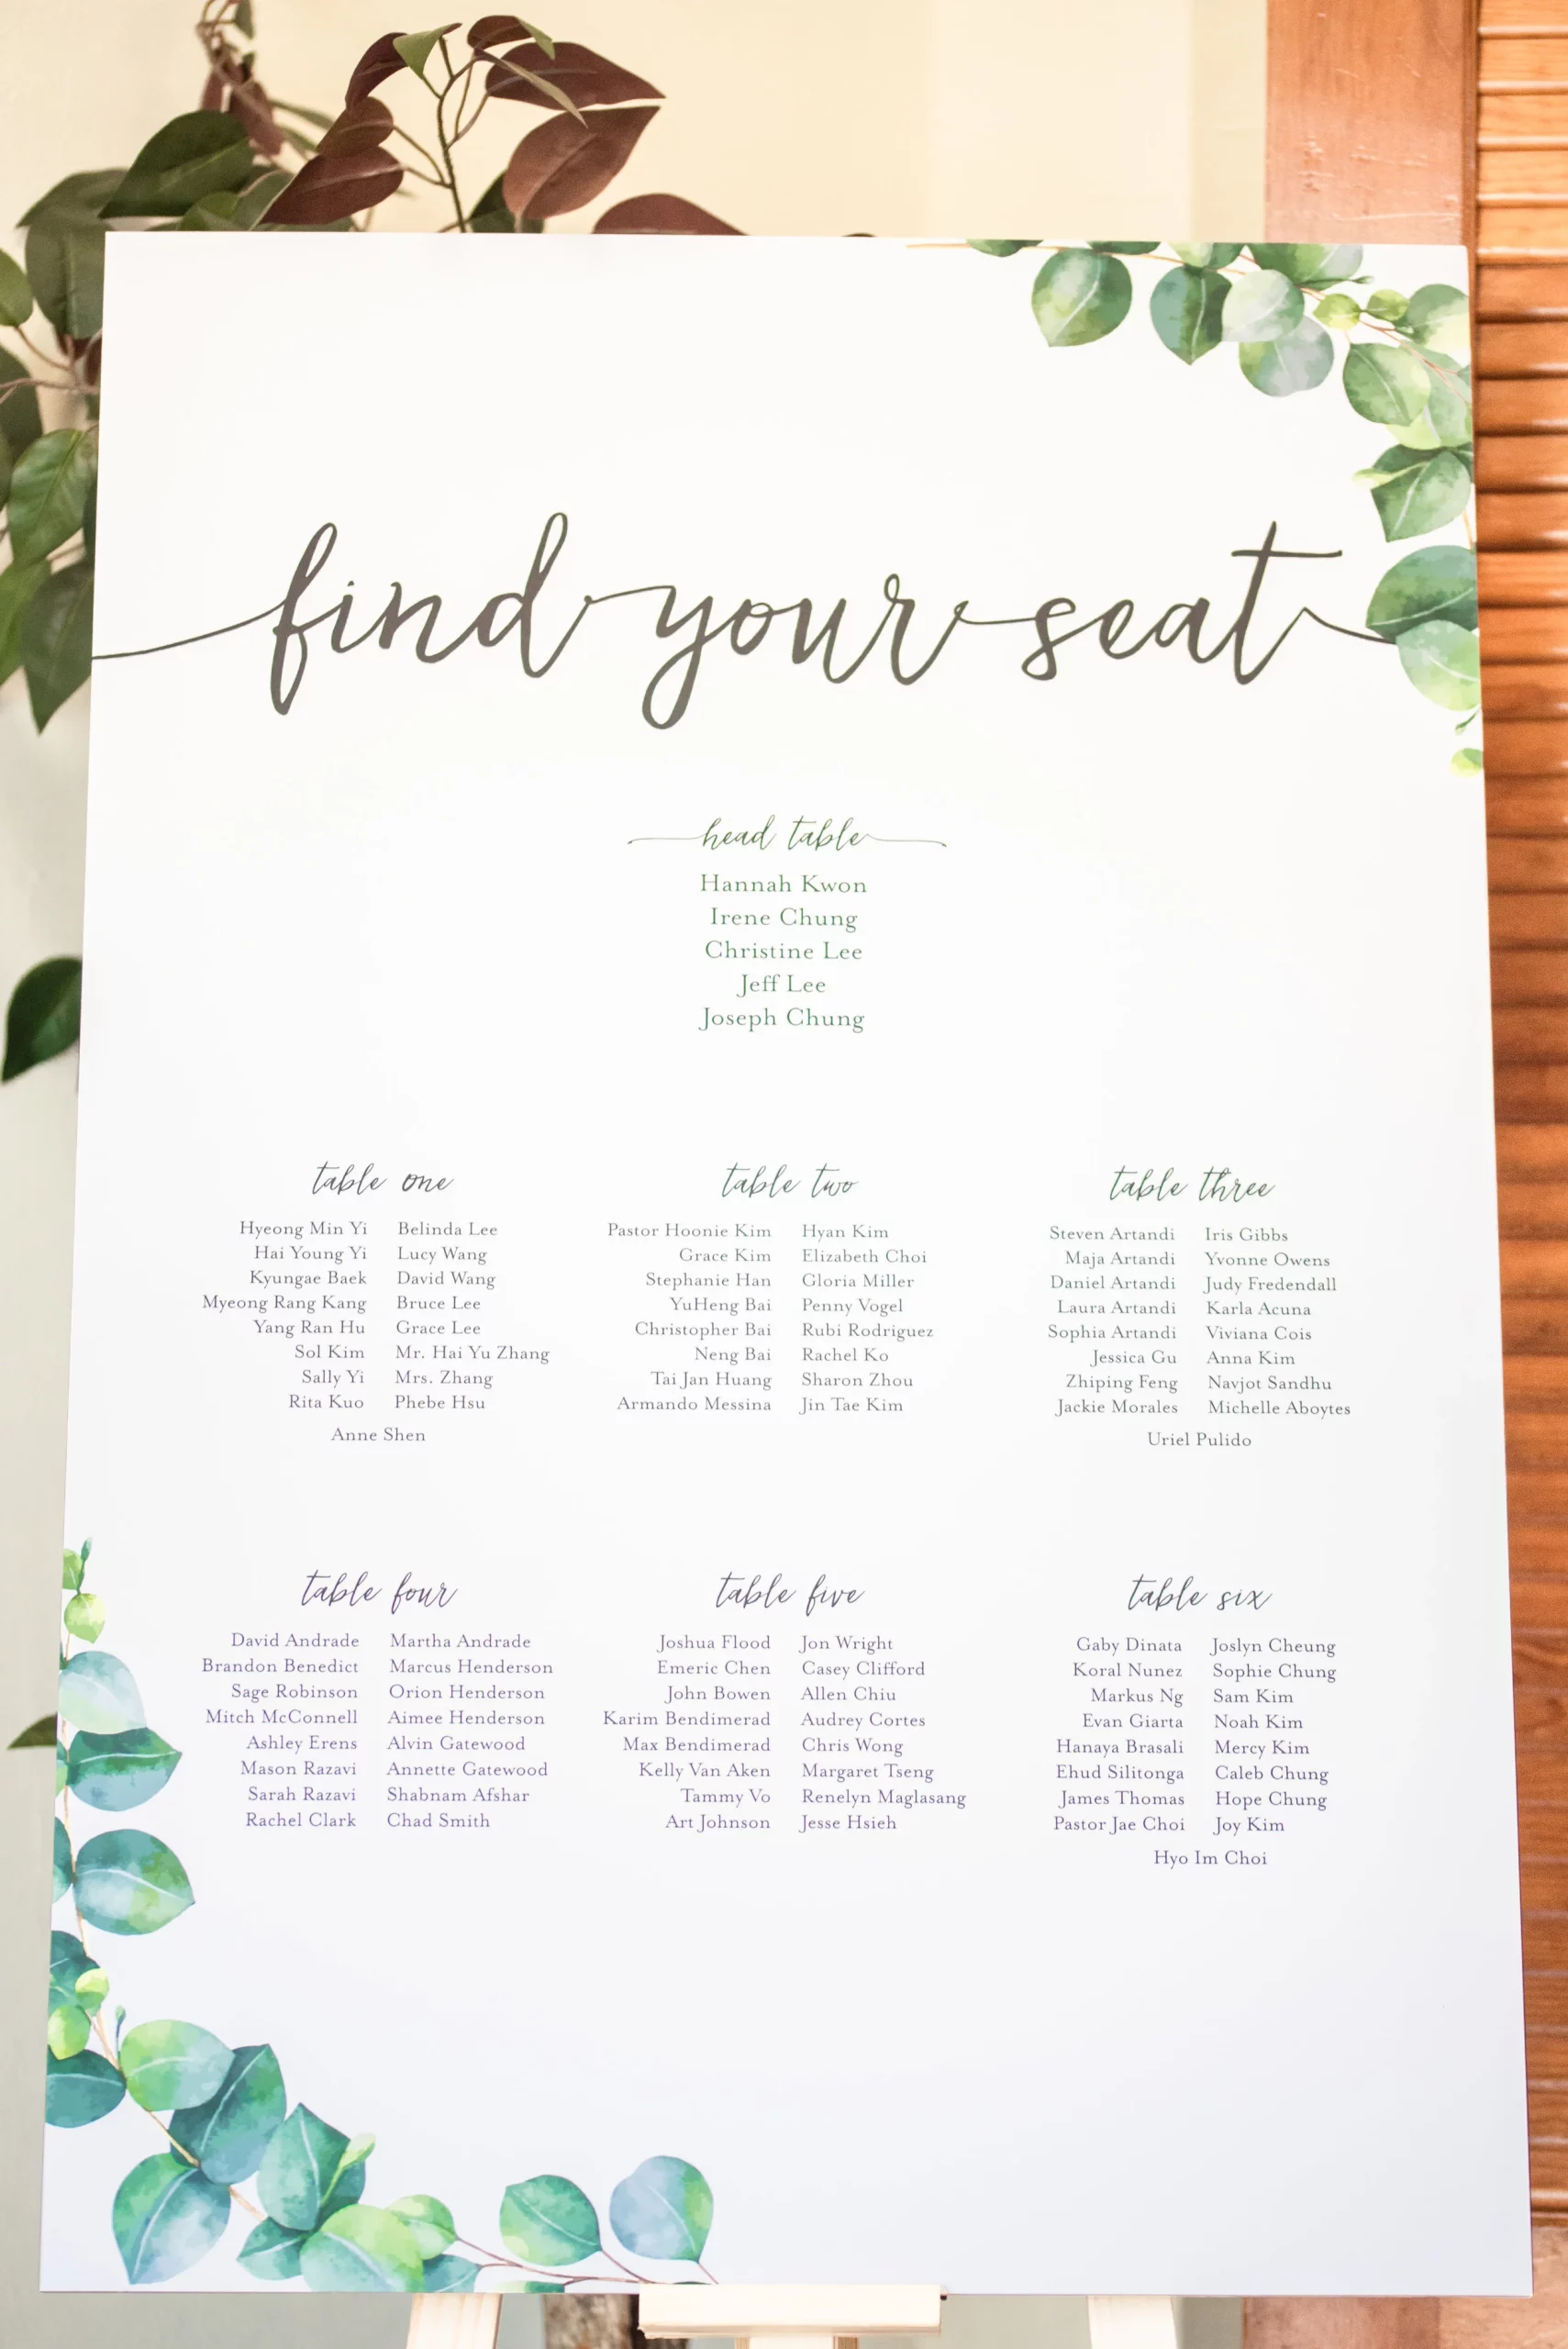 find your seat
head table
Hannah Kwon
Irene Chung
Christine Lee
Jeff Lee
Joseph Chung
table one
Hyeong Min Yi Belinda Lee
Hai Young Yi Lucy Wang
Kyungae Baek David Wang
Myeong Rang Kang Bruce Lee
Yang Ran Hu Grace Lee
Sol Kim Mr. Hai Yu Zhang
Sally Yi Mrs. Zhang
Rita Kuo Phebe Hsu
Anne Shen
table two
Pastor Hoonie Kim Hyan Kim
Grace Kim Elizabeth Choi
Stephanie Han Gloria Miller
YuHeng Bai Penny Vogel
Christopher Bai Rubi Rodriguez
Neng Bai Rachel Ko
Tai Jan Huang Sharon Zhou
Armando Messina Jin Tae Kim
table three
Steven Artandi Iris Gibbs
Maja Artandi Yvonne Owens
Daniel Artandi Judy Fredendall
Laura Artandi Karla Acuna
Sophia Artandi Viviana Cois
Jessica Gu Anna Kim
Zhiping Feng Navjot Sandhu
Jackie Morales Michelle Aboytes
Uriel Pulido
table four
David Andrade Martha Andrade
Brandon Benedict Marcus Henderson
Sage Robinson Orion Henderson
Mitch McConnell Aimee Henderson
Ashley Erens Alvin Gatewood
Mason Razavi Annette Gatewood
Sarah Razavi Shabnam Afshar
Rachel Clark Chad Smith
table five
Joshua Flood Jon Wright
Emeric Chen Casey Clifford
John Bowen Allen Chiu
Karim Bendimerad Audrey Cortes
Max Bendimerad Chris Wong
Kelly Van Aken Margaret Tseng
Tammy Vo Renelyn Maglasang
Art Johnson Jesse Hsieh
table six
Gaby Dinata Joslyn Cheung
Koral Nunez Sophie Chung
Markus Ng Sam Kim
Evan Giarta Noah Kim
Hanaya Brasali Mercy Kim
Ehud Silitonga Caleb Chung
James Thomas Hope Chung
Pastor Jae Choi Joy Kim
Hyo Im Choi